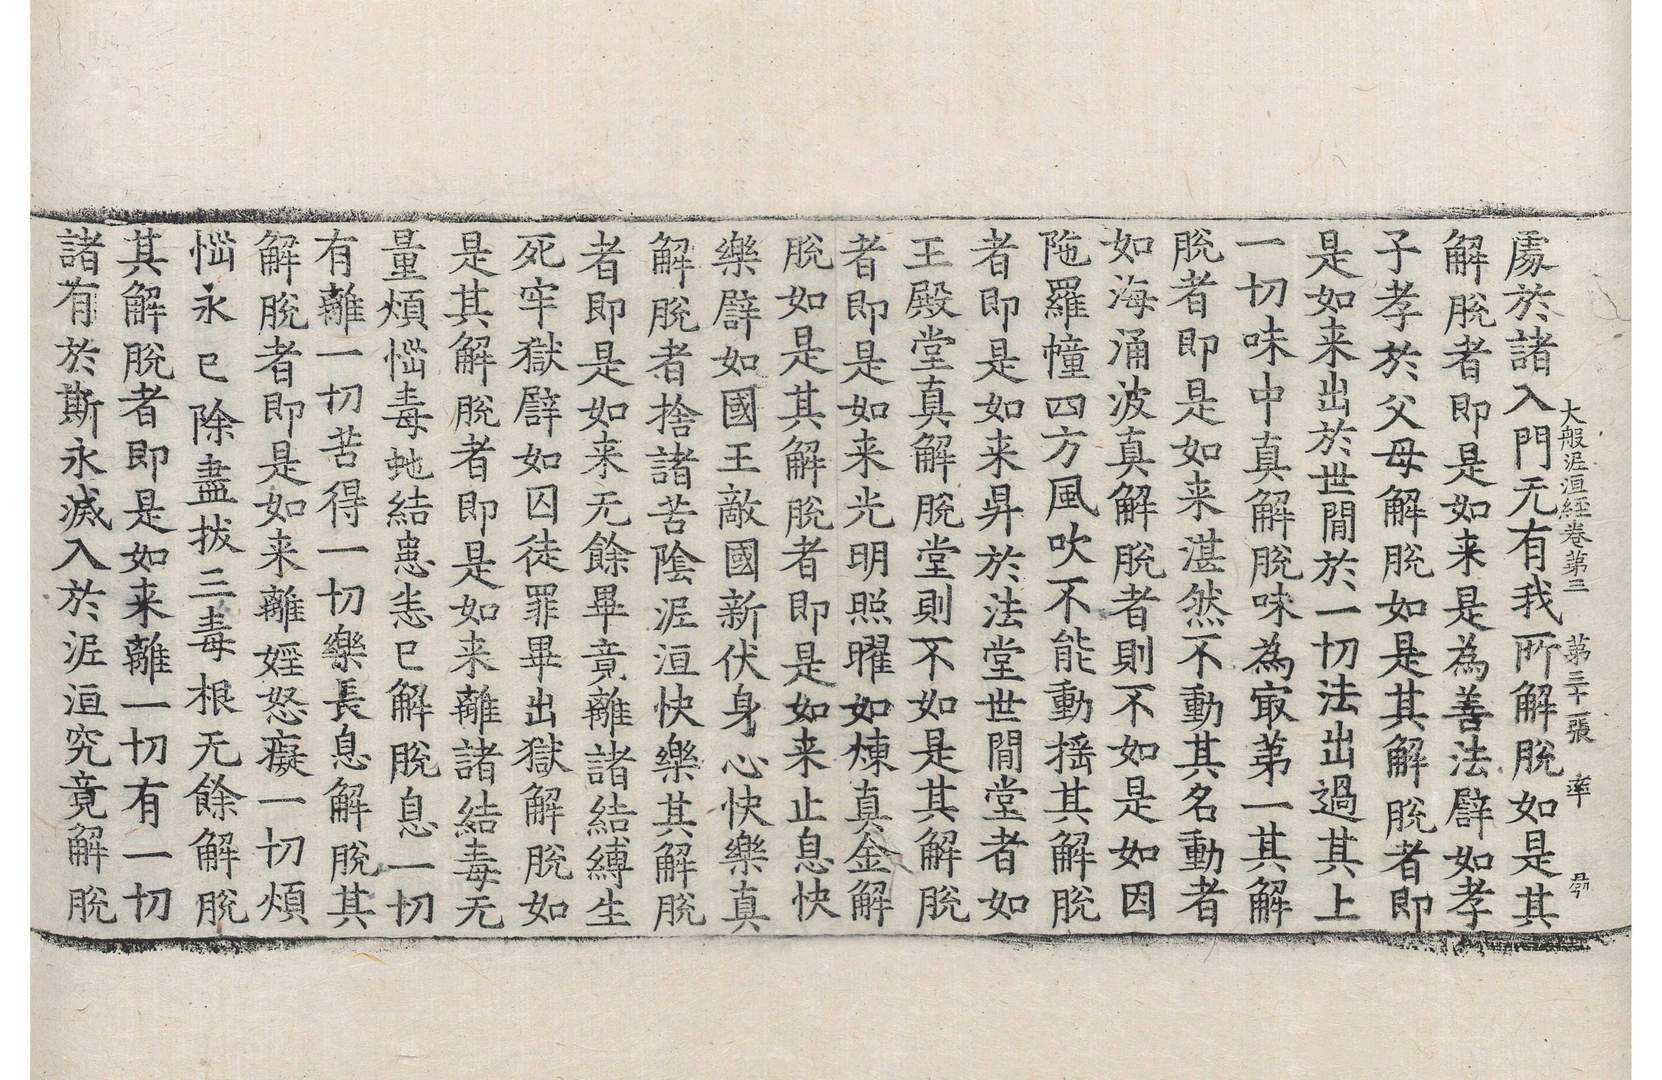 大般泥洹經卷第三 第三十一張 率
處於諸入門无有我所解脫如是其
解脫者即是如来是為善法譬如孝
子孝於父母解脫如是其解脫者即
是如来出於世間於一切法出過其上
一切味中真解脫味為冣第一其解
脫者即是如来湛然不動其名動者
如海涌波真解脫者則不如是如因
陁羅幢四方風吹不能動揺其解脫
者即是如来昇於法堂世間堂者如
王殿堂真解脫堂則不如是其解脫
者即是如来光明照曜如煉真金解
脫如是其解脫者即是如来止息快
樂譬如國王敵國新伏身心快樂真
解脫者捨諸苦陰泥洹快樂其解脫
者即是如来无餘畢竟離諸結縛生
死牢獄譬如囚徒罪畢出獄解脫如
是其解脫者即是如来離諸結毒无
量煩惱毒虵結患恚已解脫息一切
有離一切苦得一切樂長息解脫其
解脫者即是如来離婬怒癡一切煩
惱永已除盡拔三毒根无餘解脫
其解脫者即是如来離一切有一切
諸有於斯永滅入於泥洹究竟解脫